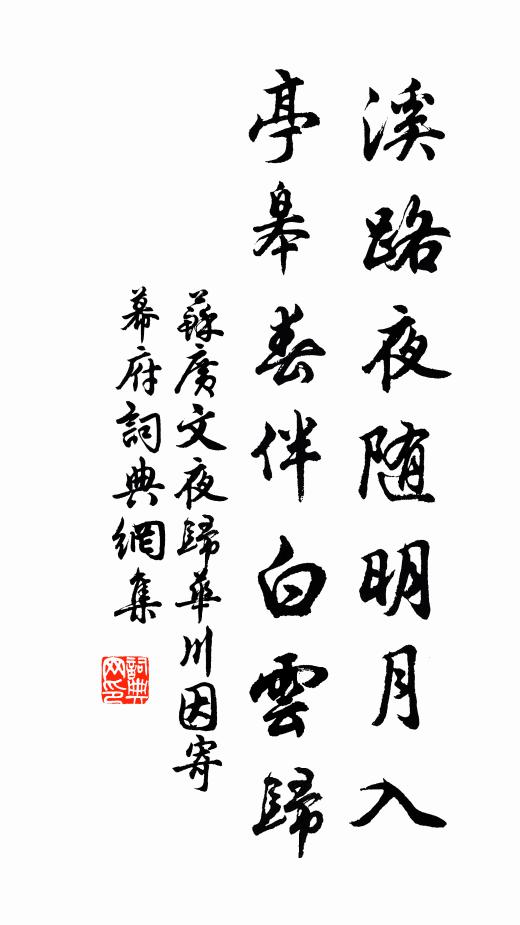 溪路夜随明月入
亭皋春伴白雲歸
蘇廣文夜歸華川因寄
幕府詞典網集
詞典
网印